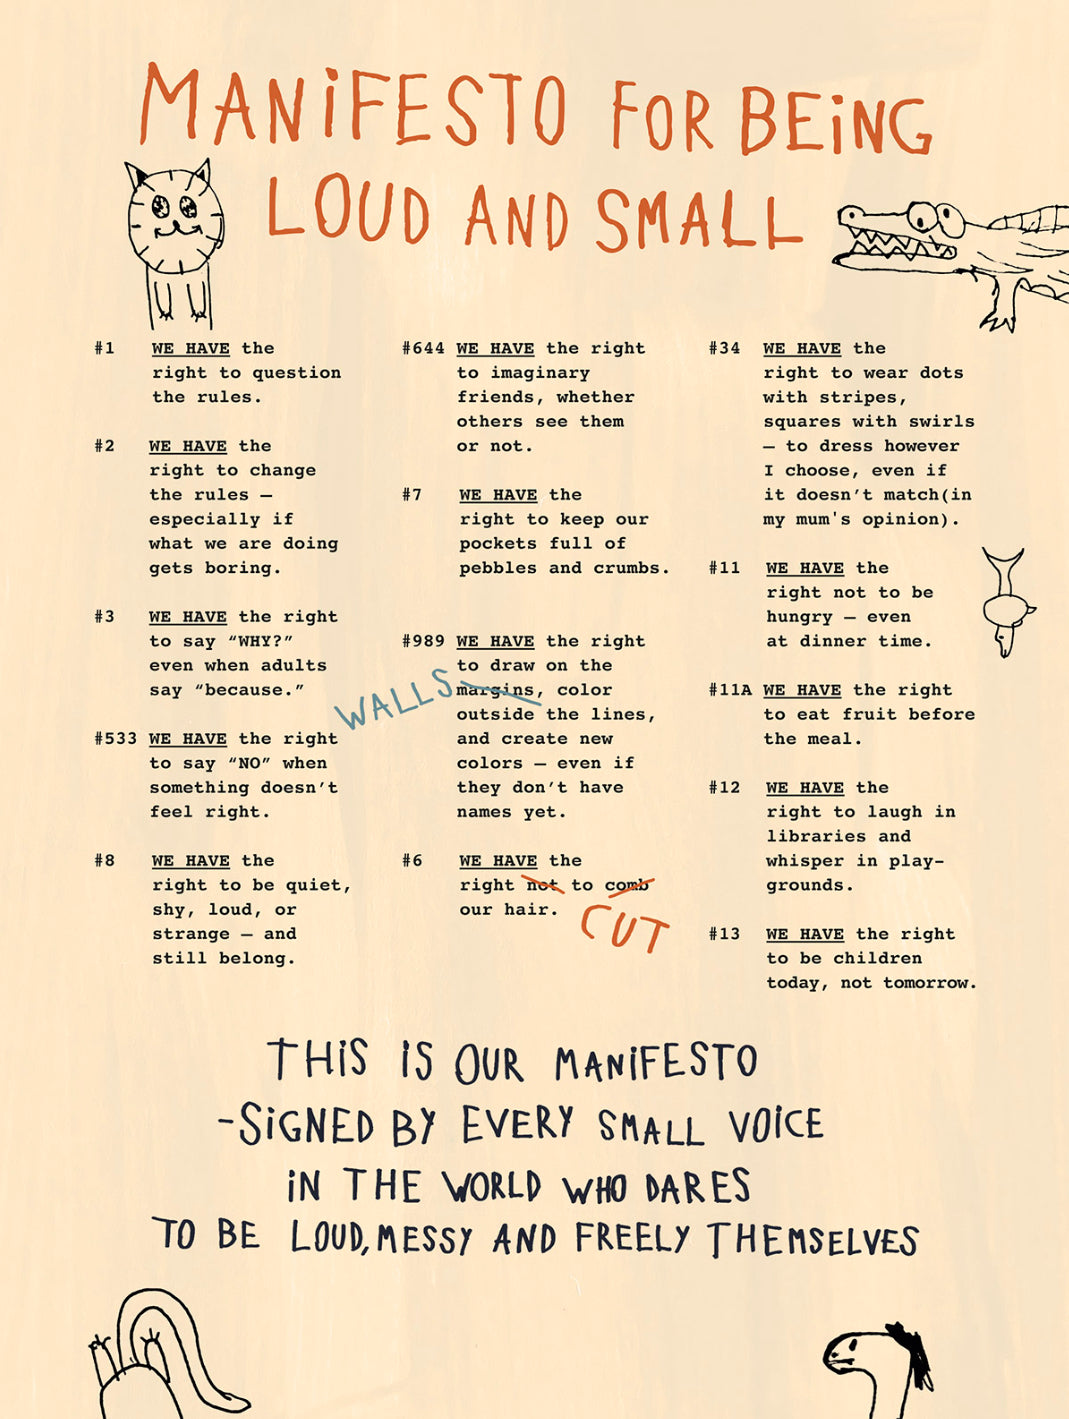 MANiFESTO FOR BEiNG
LOUD AND SMALL
#1 WE HAVE the
right to question
the rules.
#2 WE HAVE the
right to change
the rules —
especially if
what we are doing
gets boring.
#3 WE HAVE the right
to say “WHY?”
even when adults
say “because.”
#533 WE HAVE the right
to say “NO” when
something doesn’t
feel right.
#8 WE HAVE the
right to be quiet,
shy, loud, or
strange — and
still belong.
#644 WE HAVE the right
to imaginary
friends, whether
others see them
or not.
#7 WE HAVE the
right to keep our
pockets full of
pebbles and crumbs.
#989 WE HAVE the right
to draw on the
WALLS margins, color
outside the lines,
and create new
colors — even if
they don’t have
names yet.
#6 WE HAVE the
right not to comb
our hair.
CUT
#34 WE HAVE the
right to wear dots
with stripes,
squares with swirls
— to dress however
I choose, even if
it doesn’t match(in
my mum's opinion).
#11 WE HAVE the
right not to be
hungry — even
at dinner time.
#11A WE HAVE the right
to eat fruit before
the meal.
#12 WE HAVE the
right to laugh in
libraries and
whisper in play-
grounds.
#13 WE HAVE the right
to be children
today, not tomorrow.
THiS IS OUR MANiFESTO
-SiGNED BY EVERY SMALL VOICE
iN THE WORLD WHO DARES
TO BE LOUD, MESSY AND FREELY THEMSELVES